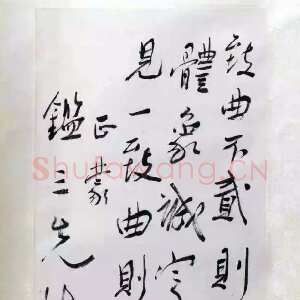 致曲不貳則
體象誠定
見一致曲則
正蒙
鑑三先
Shufawang.CN